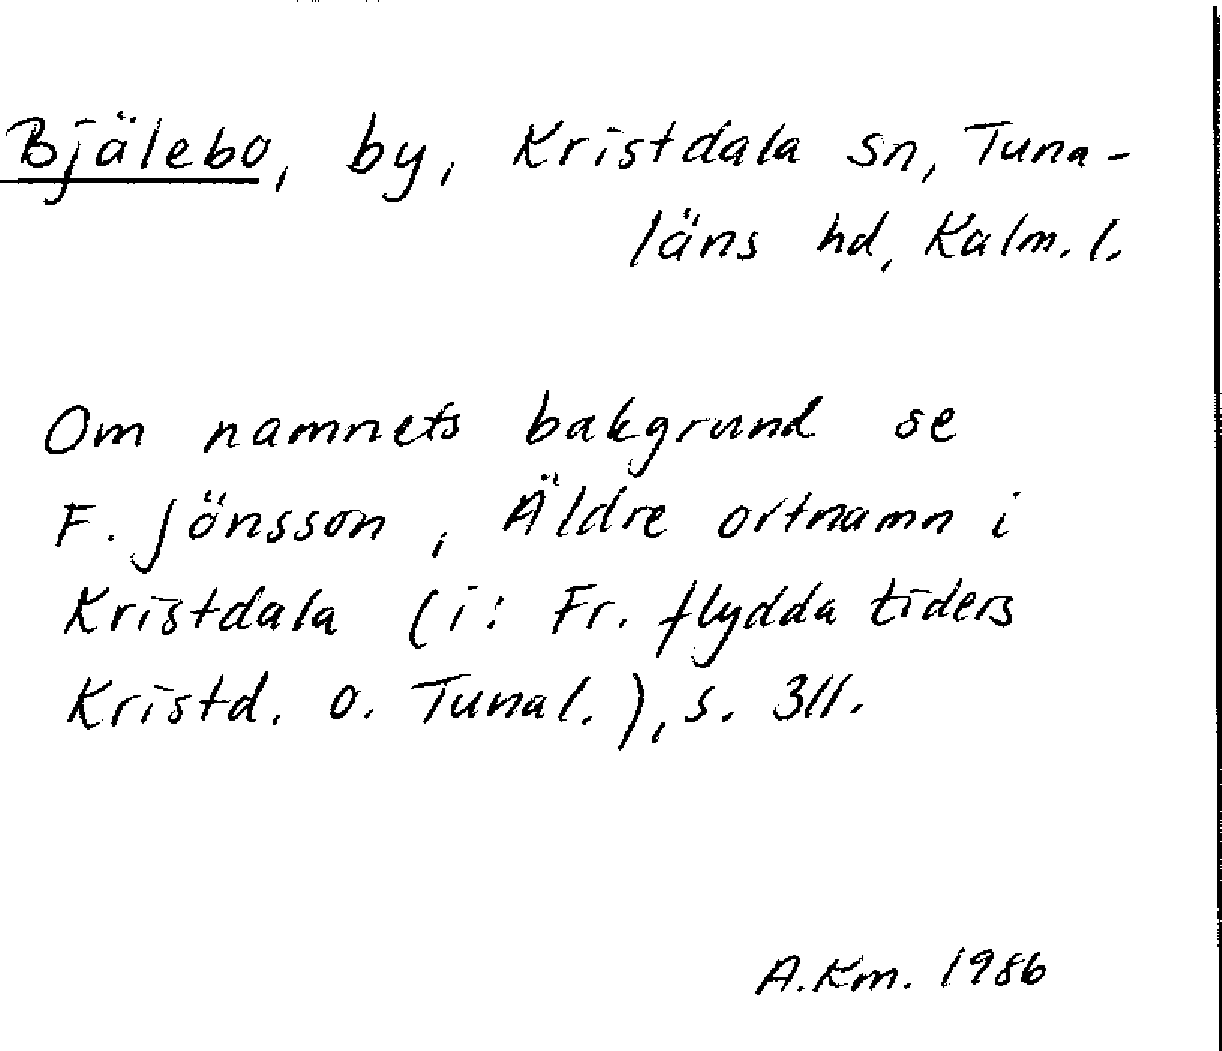 Bjälebo, by, Kristdala sn, Tuna-
läns hd, Kalm. l.
Om namnets bakgrund se
F. Jönsson, Äldre ortnamn i
Kristdala (i: Fr. flydda tiders
Kristd. o. Tunal.), s. 311.
A.Km. 1986